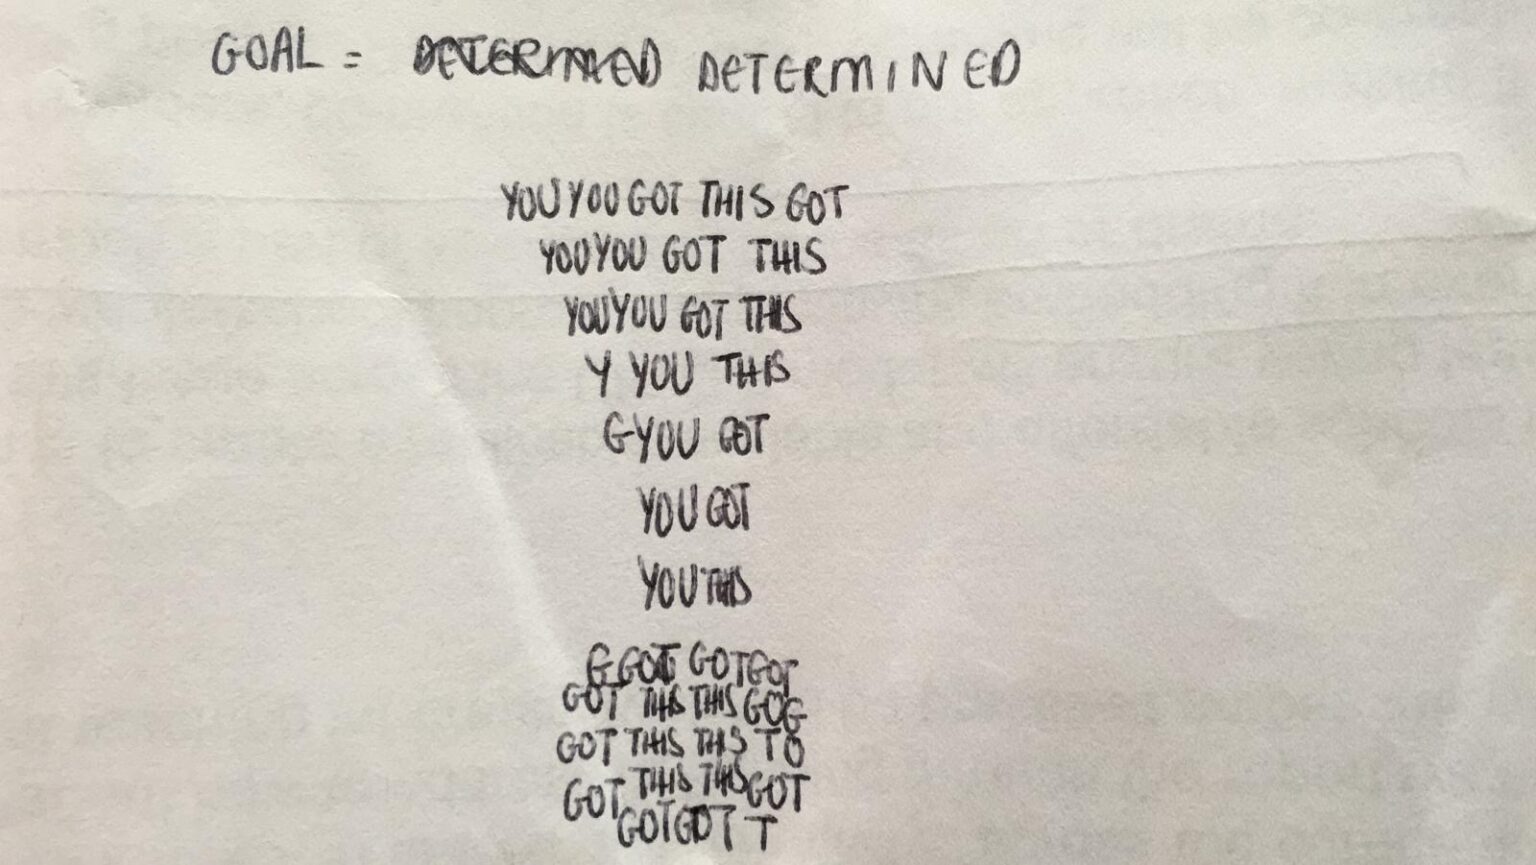 GOAL = DETERMINED DETERMINED
YOU YOU GOT THIS GOT
YOU YOU GOT THIS
YOU YOU GOT THIS
Y YOU THIS
G YOU GOT
YOU GOT
YOU THIS
G GOT GOT GOT
GOT THIS THIS GOG
GOT THIS THIS TO
GOT THIS THIS GOT
GOT GOT T